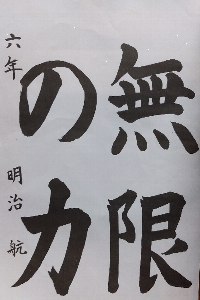 無限
の力
六年 明治 航